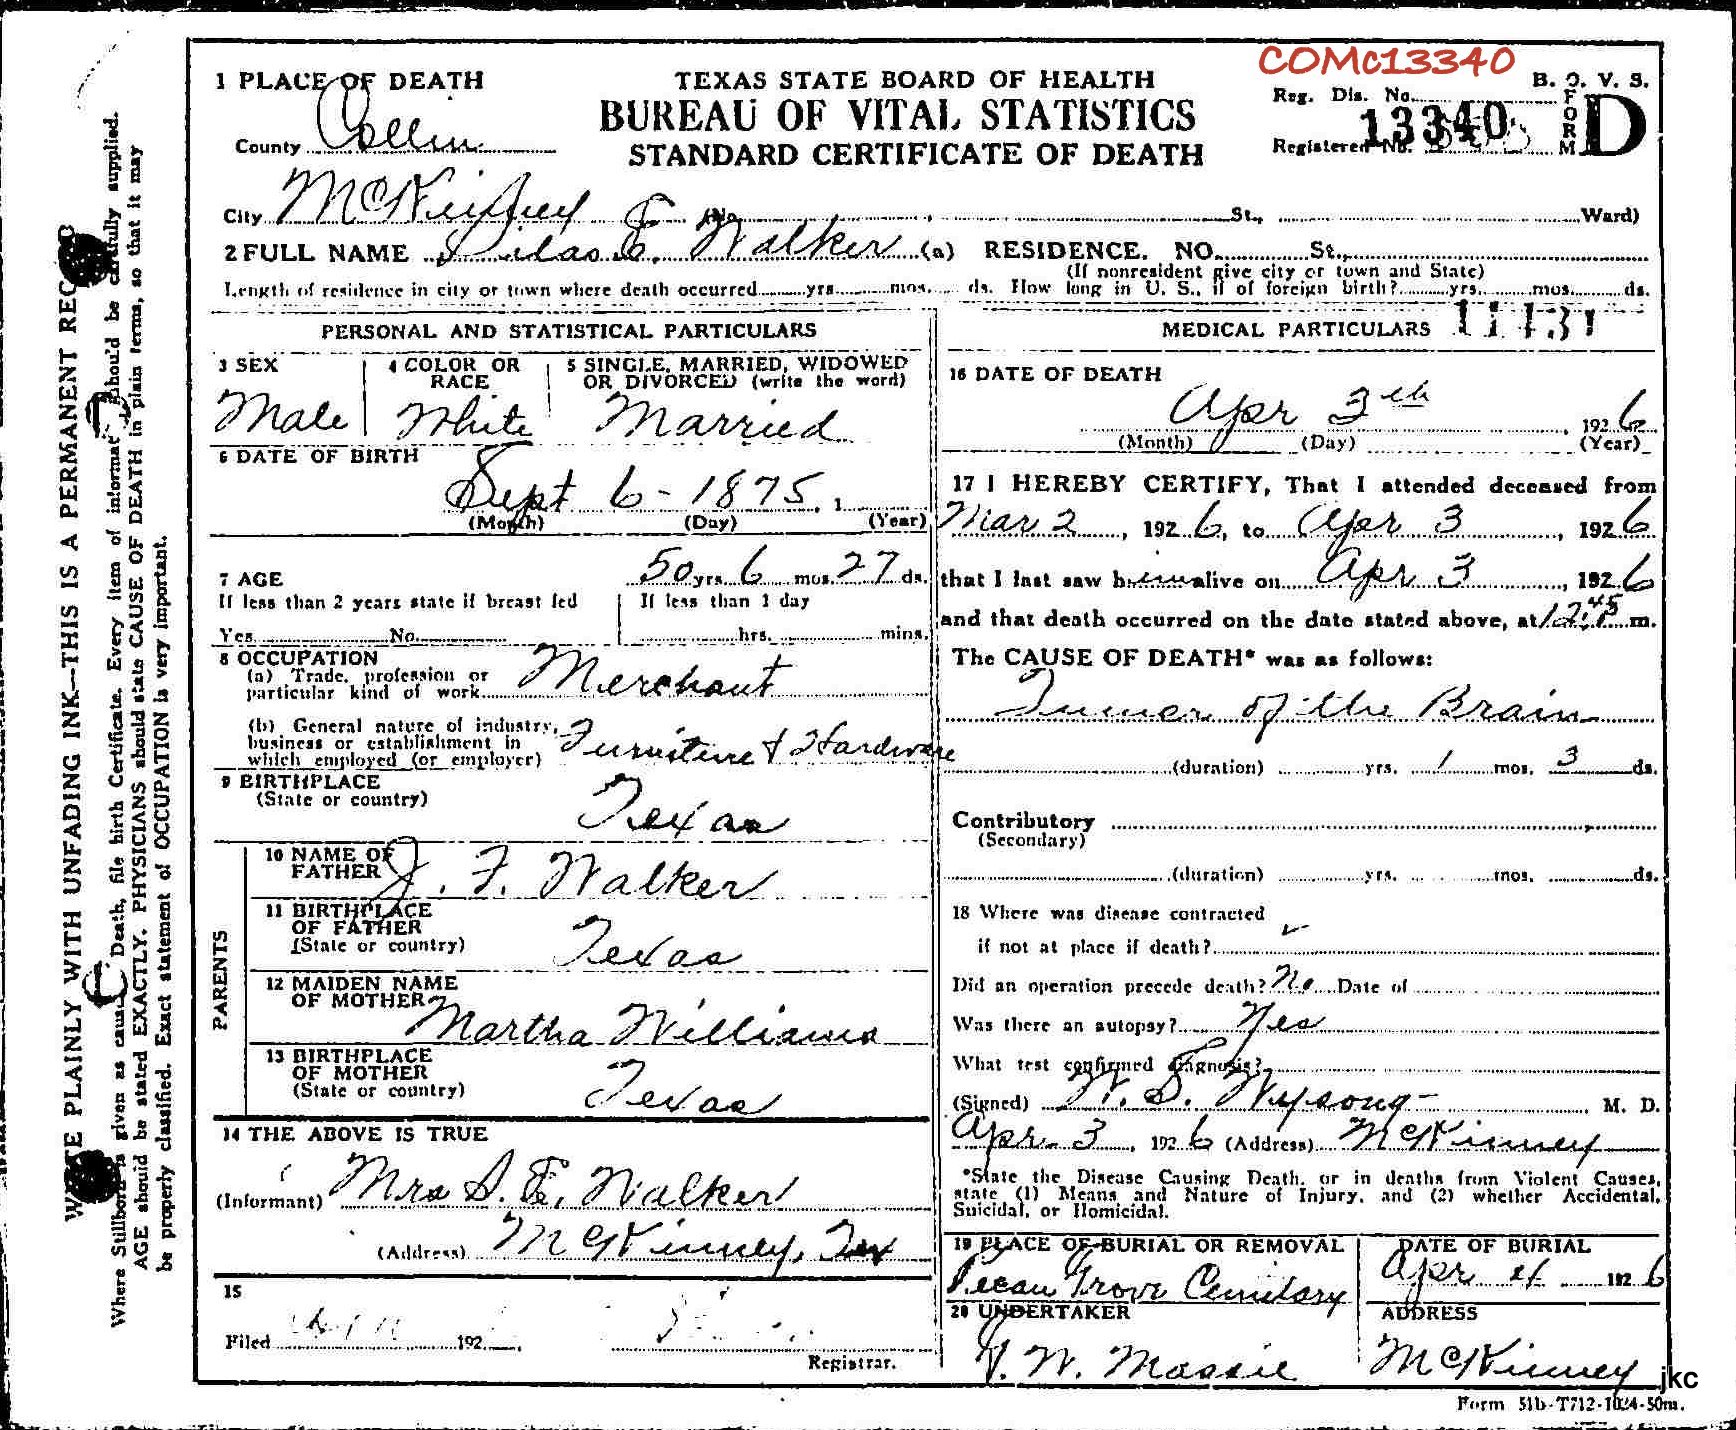 COMc13340
1 PLACE OF DEATH
TEXAS STATE BOARD OF HEALTH
B. O. V. S.
BUREAU OF VITAL STATISTICS
STANDARD CERTIFICATE OF DEATH
Reg. Dis. No.
FORM D
13340
Registered No.
County Collin
City McKinney (No. St., Ward)
2 FULL NAME Silas E. Walker (a) RESIDENCE. NO. St.,
(If nonresident give city or town and State)
Length of residence in city or town where death occurred yrs. mos. ds. How long in U. S., if of foreign birth? yrs. mos. ds.
PERSONAL AND STATISTICAL PARTICULARS
3 SEX
Male
4 COLOR OR RACE
White
5 SINGLE, MARRIED, WIDOWED
OR DIVORCED (write the word)
Married
6 DATE OF BIRTH
Sept 6 - 1875, 1
(Month) (Day) (Year)
7 AGE 50 yrs. 6 mos. 27 ds.
If less than 2 years state if breast fed
Yes No
If less than 1 day
hrs. mins.
8 OCCUPATION
(a) Trade, profession or
particular kind of work Merchant
(b) General nature of industry,
business or establishment in
which employed (or employer) Furniture & Hardware
9 BIRTHPLACE
(State or country) Texas
PARENTS
10 NAME OF
FATHER J. F. Walker
11 BIRTHPLACE
OF FATHER
(State or country) Texas
12 MAIDEN NAME
OF MOTHER Martha Williams
13 BIRTHPLACE
OF MOTHER
(State or country) Texas
14 THE ABOVE IS TRUE
(Informant) Mrs S. E. Walker
(Address) McKinney, Tex
15
Filed 192
Registrar.
MEDICAL PARTICULARS
16 DATE OF DEATH
Apr 3th, 1926
(Month) (Day) (Year)
17 I HEREBY CERTIFY, That I attended deceased from
Mar 2, 1926, to Apr 3, 1926
that I last saw him alive on Apr 3, 1926
and that death occurred on the date stated above, at 12:45 m.
The CAUSE OF DEATH* was as follows:
Tumor of the Brain
(duration) yrs. 1 mos. 3 ds.
Contributory
(Secondary)
(duration) yrs. mos. ds.
18 Where was disease contracted
if not at place if death?
Did an operation precede death? No Date of
Was there an autopsy? Yes
What test confirmed diagnosis?
(Signed) W. S. Wysong M. D.
Apr 3, 1926 (Address) McKinney
*State the Disease Causing Death, or in deaths from Violent Causes,
state (1) Means and Nature of Injury, and (2) whether Accidental,
Suicidal, or Homicidal.
19 PLACE OF BURIAL OR REMOVAL
Pecan Grove Cemetary
DATE OF BURIAL
Apr 4 1926
20 UNDERTAKER
W. Massie
ADDRESS
McKinney
jkc
Form 51b-T712-1024-50m.
WRITE PLAINLY WITH UNFADING INK—THIS IS A PERMANENT RECO
Where Stillborn is given as cause Death, file birth Certificate. Every item of informat should be carefully supplied.
AGE should be stated EXACTLY. PHYSICIANS should state CAUSE OF DEATH in plain terms, so that it may
be properly classified. Exact statement of OCCUPATION is very important.